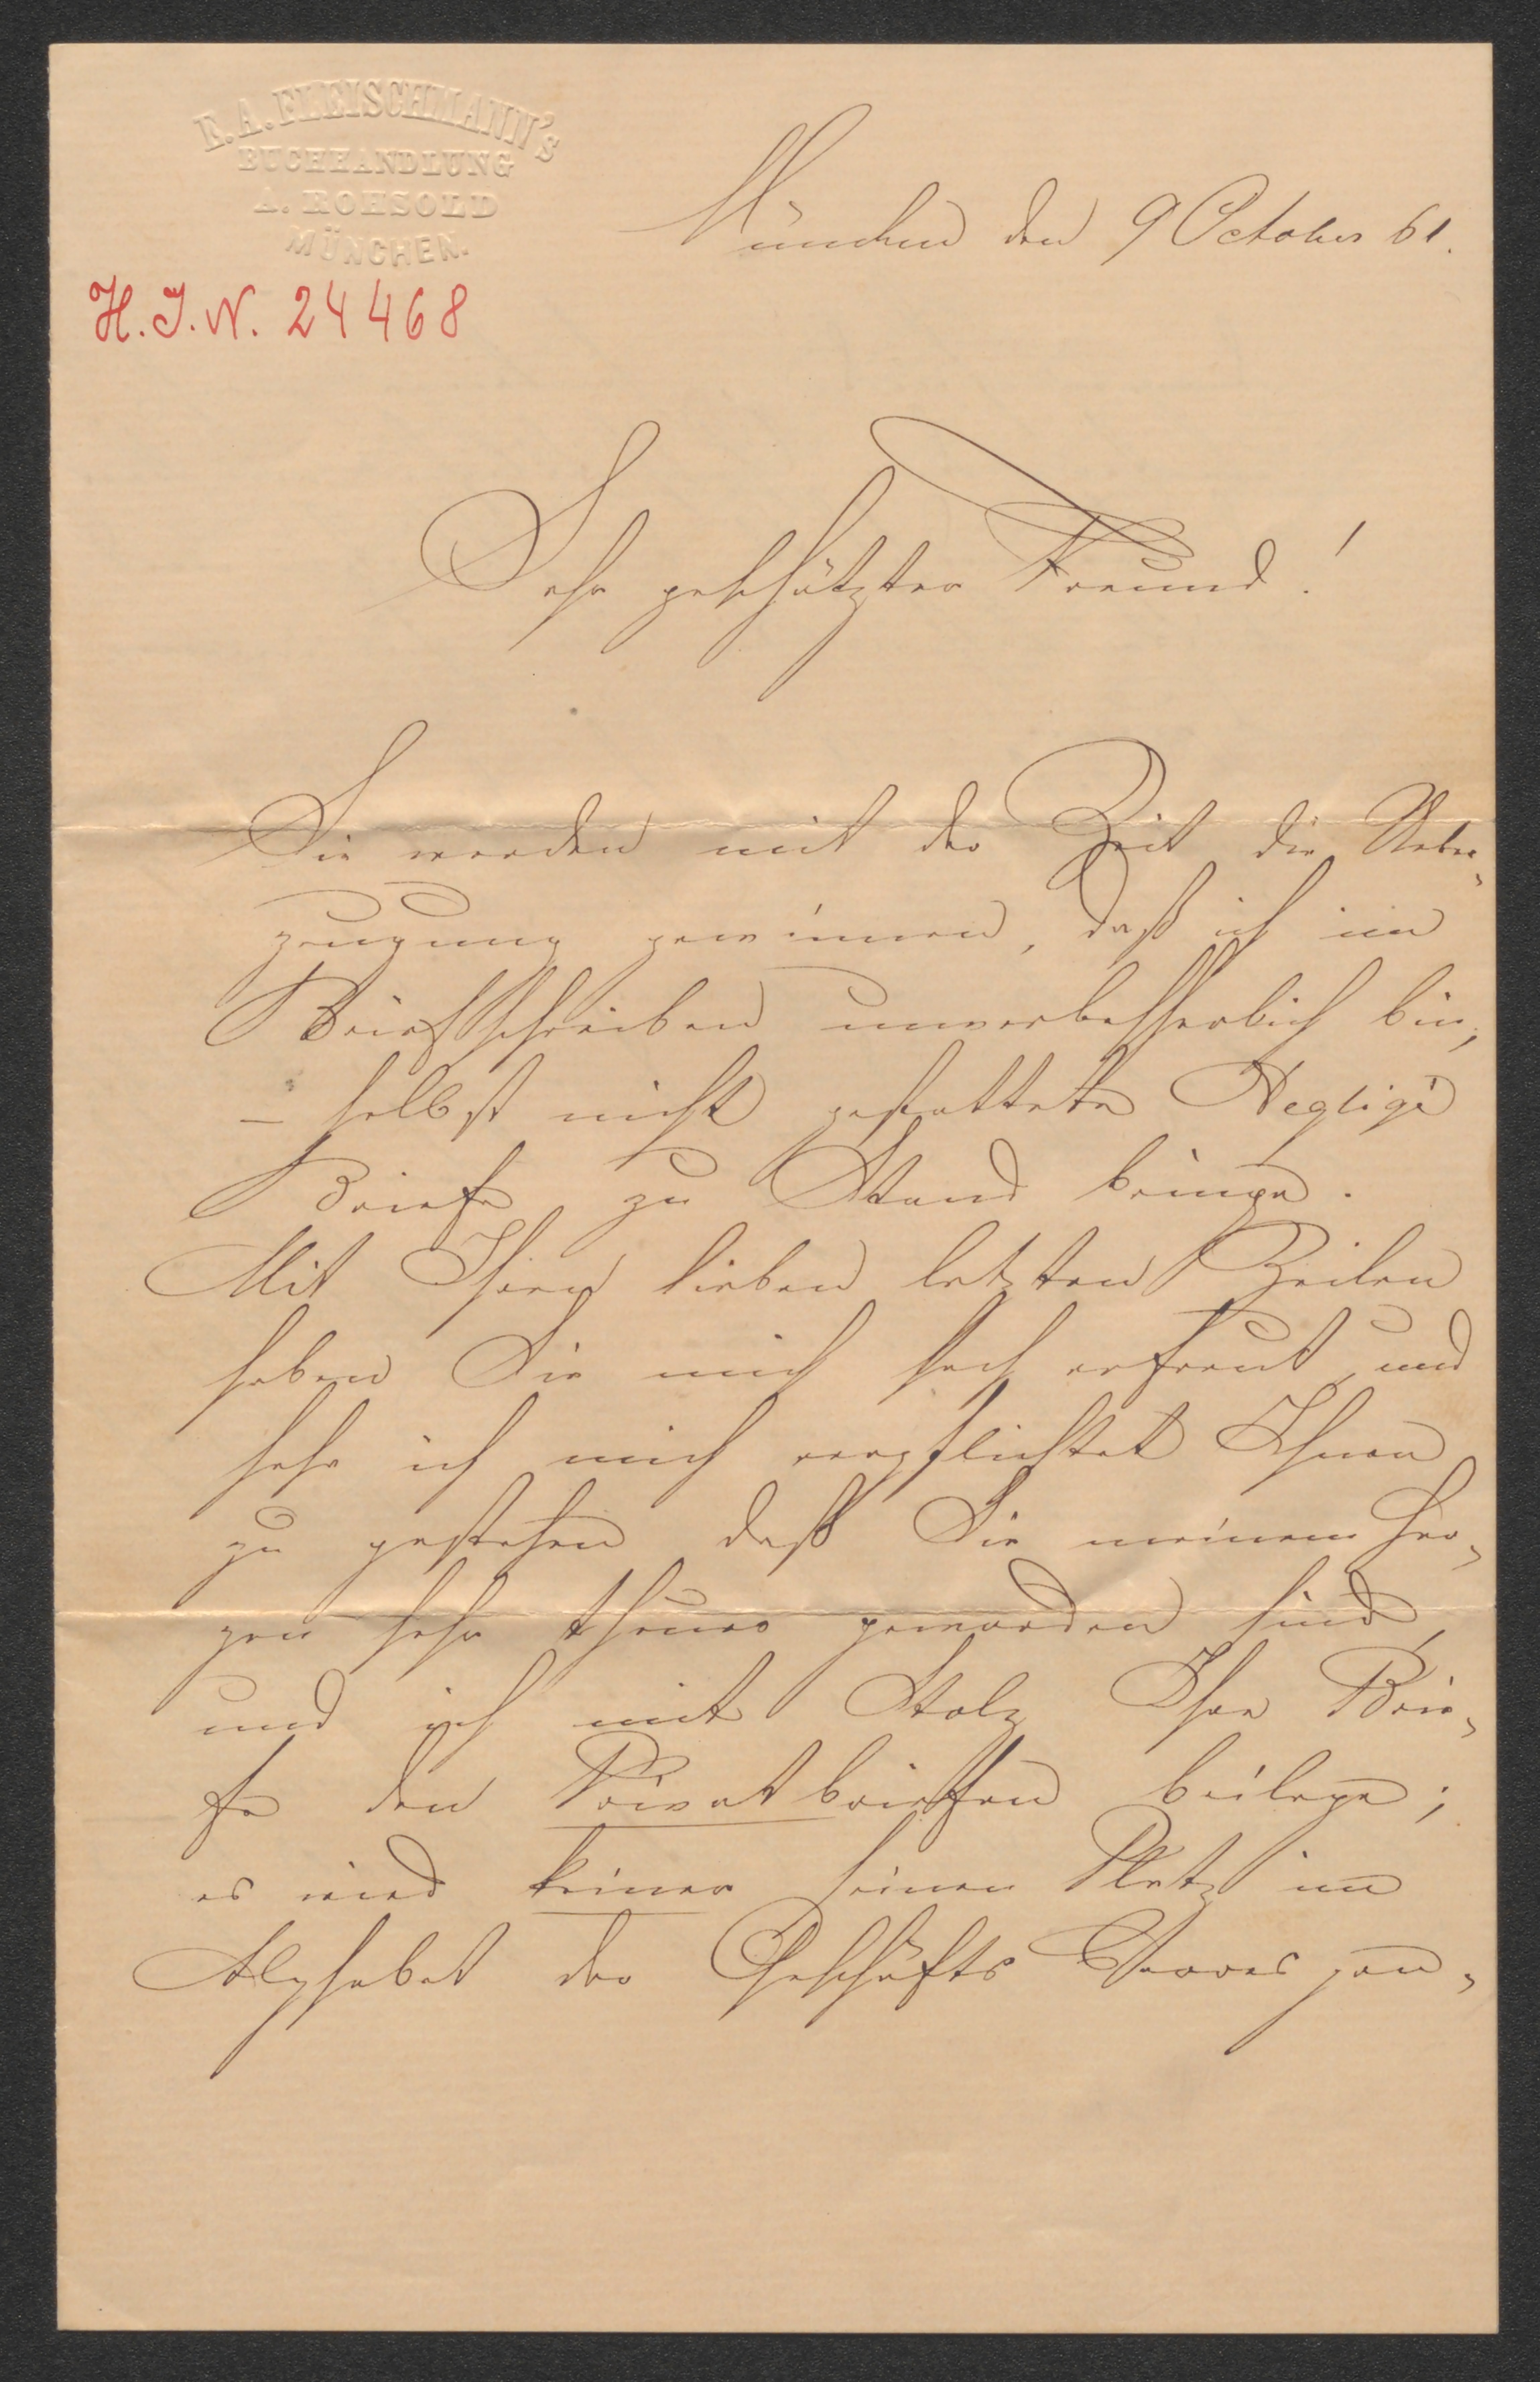 E. A. FLEISCHMANN'S
BUCHHANDLUNG
A. ROHSOLD
MÜNCHEN.
H. I. N. 24468
München den 9 October 61.
Sehr geschätzter Freund!
Sie werden mit der Zeit die Ueber-
zeugung gewinnen, daß ich im
Briefschreiben unverbesserlich bin,
– selbst nicht gestattete Negligé
Briefe zu Stand bringe.
Mit Ihren lieben letzten Zeilen
haben Sie mich hoch erfreut, und
sehe ich mich verpflichtet Ihnen
zu gestehen daß Sie meinem Her-
zen sehr theuer geworden sind,
und ich mit Stolz Ihre Brie-
fe den Privatbriefen beilege;
es wird keiner seinen Platz im
Alphabet der Geschäfts Corres pon-